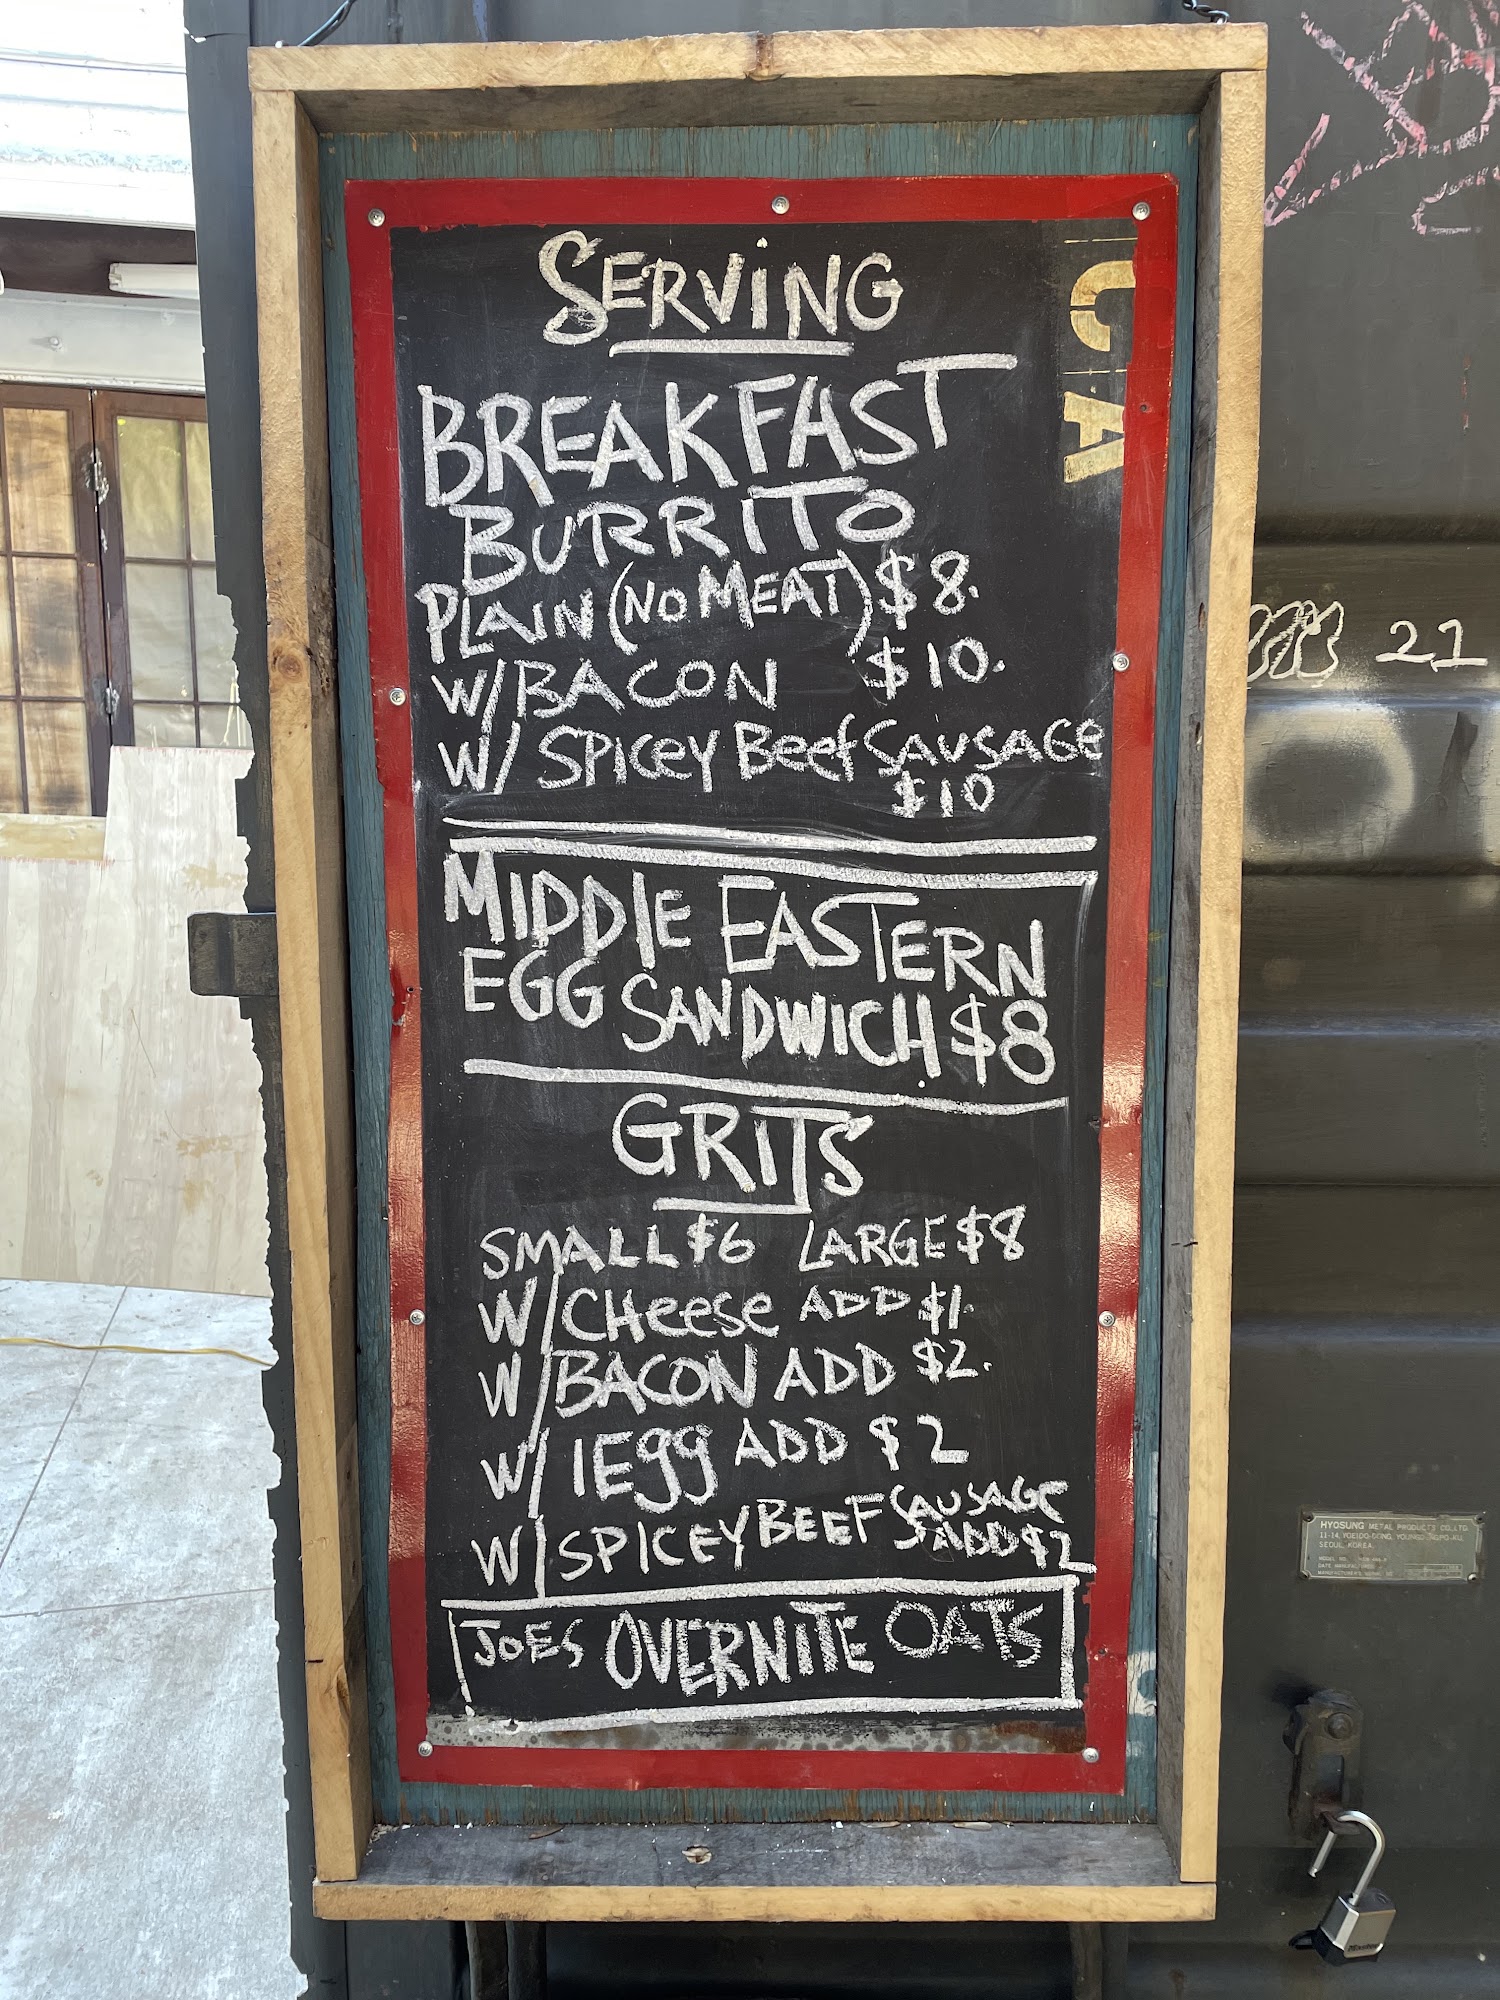 SERViNG
BREAKFAST
BURRITO
PLAIN (NO MEAT) $8.
W/BACON $10.
W/ SPICEY Beef SAUSAGe
$10
MIDDLE EASTERN
EGG SANDWICH $8
GRITS
SMALL $6 LARGE $8
W/CHeese ADD $1.
W/BACON ADD $2.
W/ 1Egg ADD $2
W/SPICEY BEEF SAUSAGE
ADD $2
JOES OVERNITE OATS
CA
21
HYOSUNG METAL PRODUCTS CO., LTD.
SEOUL, KOREA.
MODEL NO.
DATE MANUFACTURED
MANUFACTURER'S